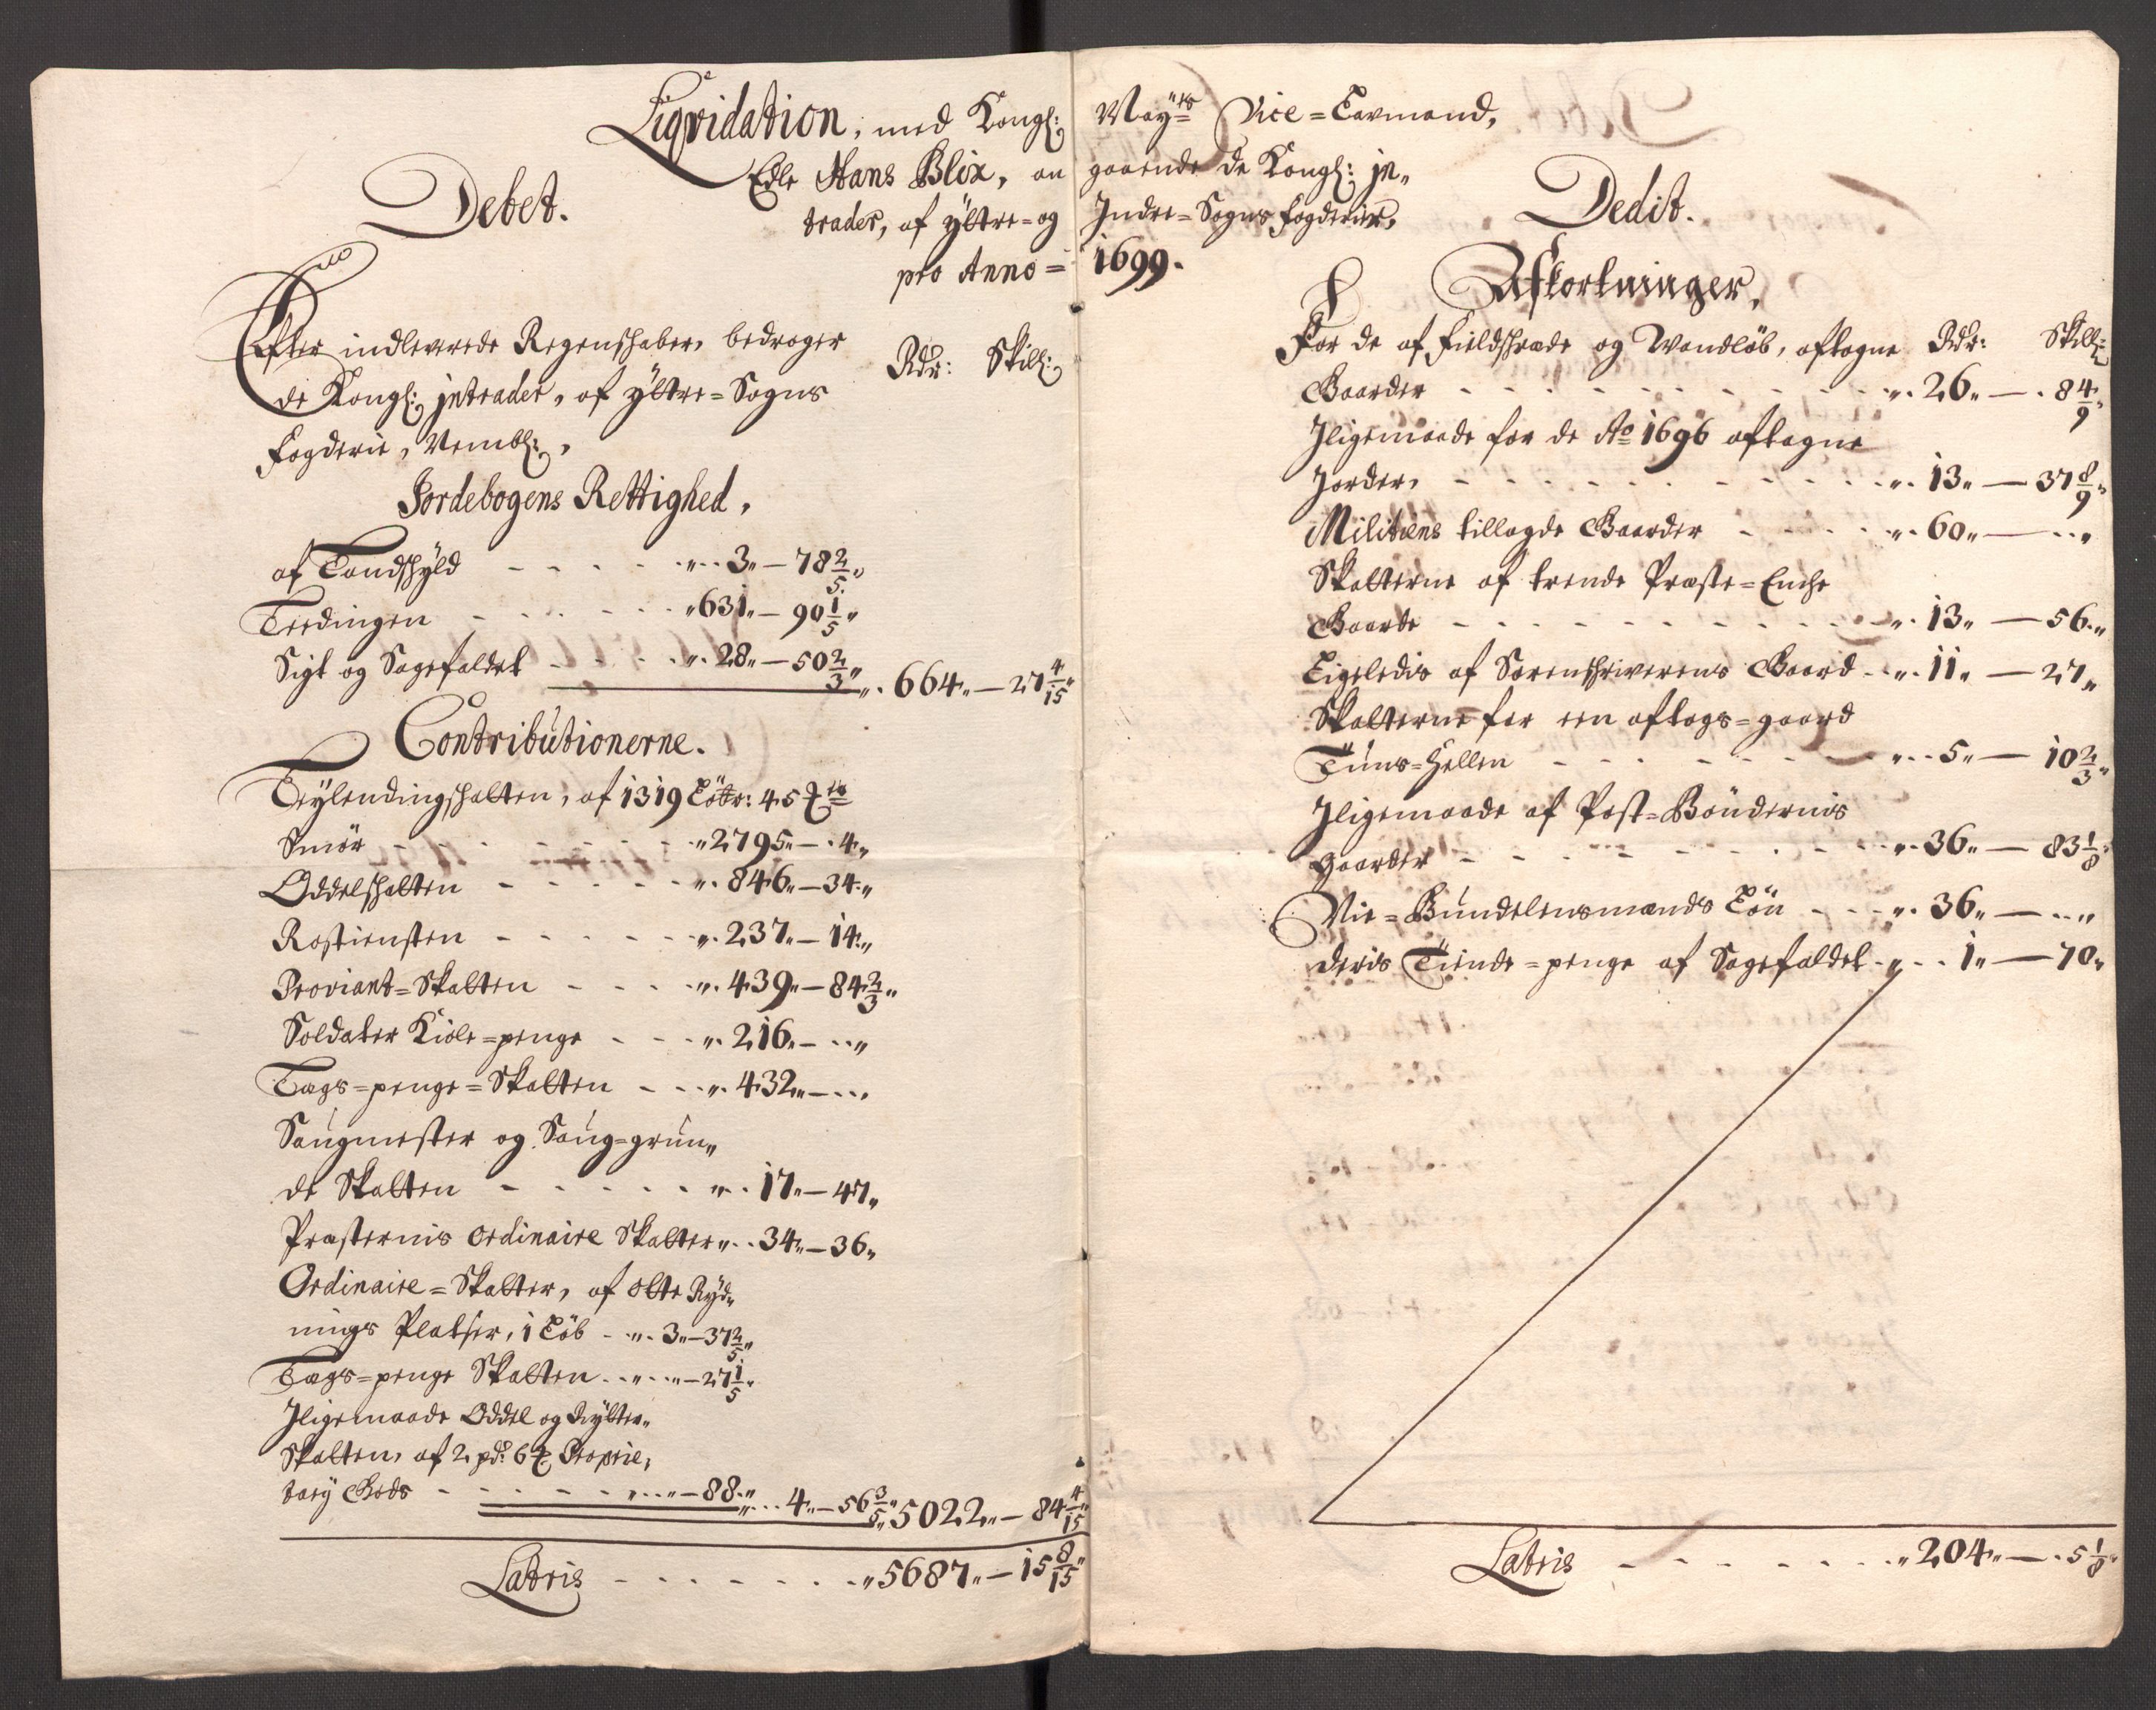 Liqvidation, med Kongl: Mayts Vice-Lavmand,
Edle Hans Blix, an gaaende de Kongl: in„
trader, af Ÿttre- og Indre-Sogns fogderier,
pro Anno= 1699.
Debet.
Efter indleverede Regenschaber, bedrager
de Kongl: intrader, af Ÿttre-Sogns
Fogderie, Nembl:,
Rdr: Skill:
Jordebogens Rettighed,
af Landschÿld - - - - - „..3„ — 78 2/5„
Leedingen - - - - - „631„ — 90 1/5„
Sigt og Sagefaldet - - - - „.28„ — 50 2/3„ „.664„ — 27 4/15„
Contributionerne.
Leÿlendingschatten, af 1319 Löbr: 45
Smör - - - - - - „2795„ — .4„
Oddelschatten - - - - - „.846„ — 34„
Rostiensten - - - - - - „.237„ — 14„
Proviant-Skatten - - - - „.439„ — 84 2/3„
Soldater Kiole-penge - - - „.216„ — ..„
Lægs-penge-Skatten - - - „.432„ — ...
Saugmester og Saug-grun„
de Skatten - - - - - „.17„ — 47„
Præsternis ordinaire Skatter „..34„ — 36„
Ordinaire-Skatter, af Otte Rÿd„
nings Pladser, i Löb - „.3„ — 37 2/5„
Lægs-penge Skatten..„...„ — 27 1/5„
Iligemaade Oddel og Rÿtter„
Skatten, af 2 pd: 6 Proprie„
tarÿ Gods - - - - - „...„ — 88„ „...4„ — 56 3/5„ 5022„ — 84 4/15„
Latris - - - - - - - „5687„ — 15 8/15„
Dedit.
Afkortninger,
For de af Fieldschrede og Vandløb, aftagne Rdr: Skill:
Gaarder - - - - - - - - - „.26„ — .8 4/9„
Iligemaade for de Ao 1696 aftagne
Jorder, - - - - - - - - - „.13„ — 37 8/9„
Militiens tillagde Gaarder - - - - „.60„ — ..„
Skatterne af trende Præste-Enche
Gaarde - - - - - - - - - „.13„ — 56„
Ligeledis af Sorenschriverens Gaard - „.11„ — 27„
Skatterne for een aftags-gaard
Tuns-Hellen - - - - - - - „..5„ — 10 2/3„
Iligemaade af Post-Böndernis
gaarder - - - - - - - - - „.36„ — 83 1/8„
Nie-Bundelensmænds Lön - - - „.36„ — ..„
deris Tiende-penge af Sagefaldet - „..1„ — 70„
Latris - - - - - - - „204„ — .5 1/8„